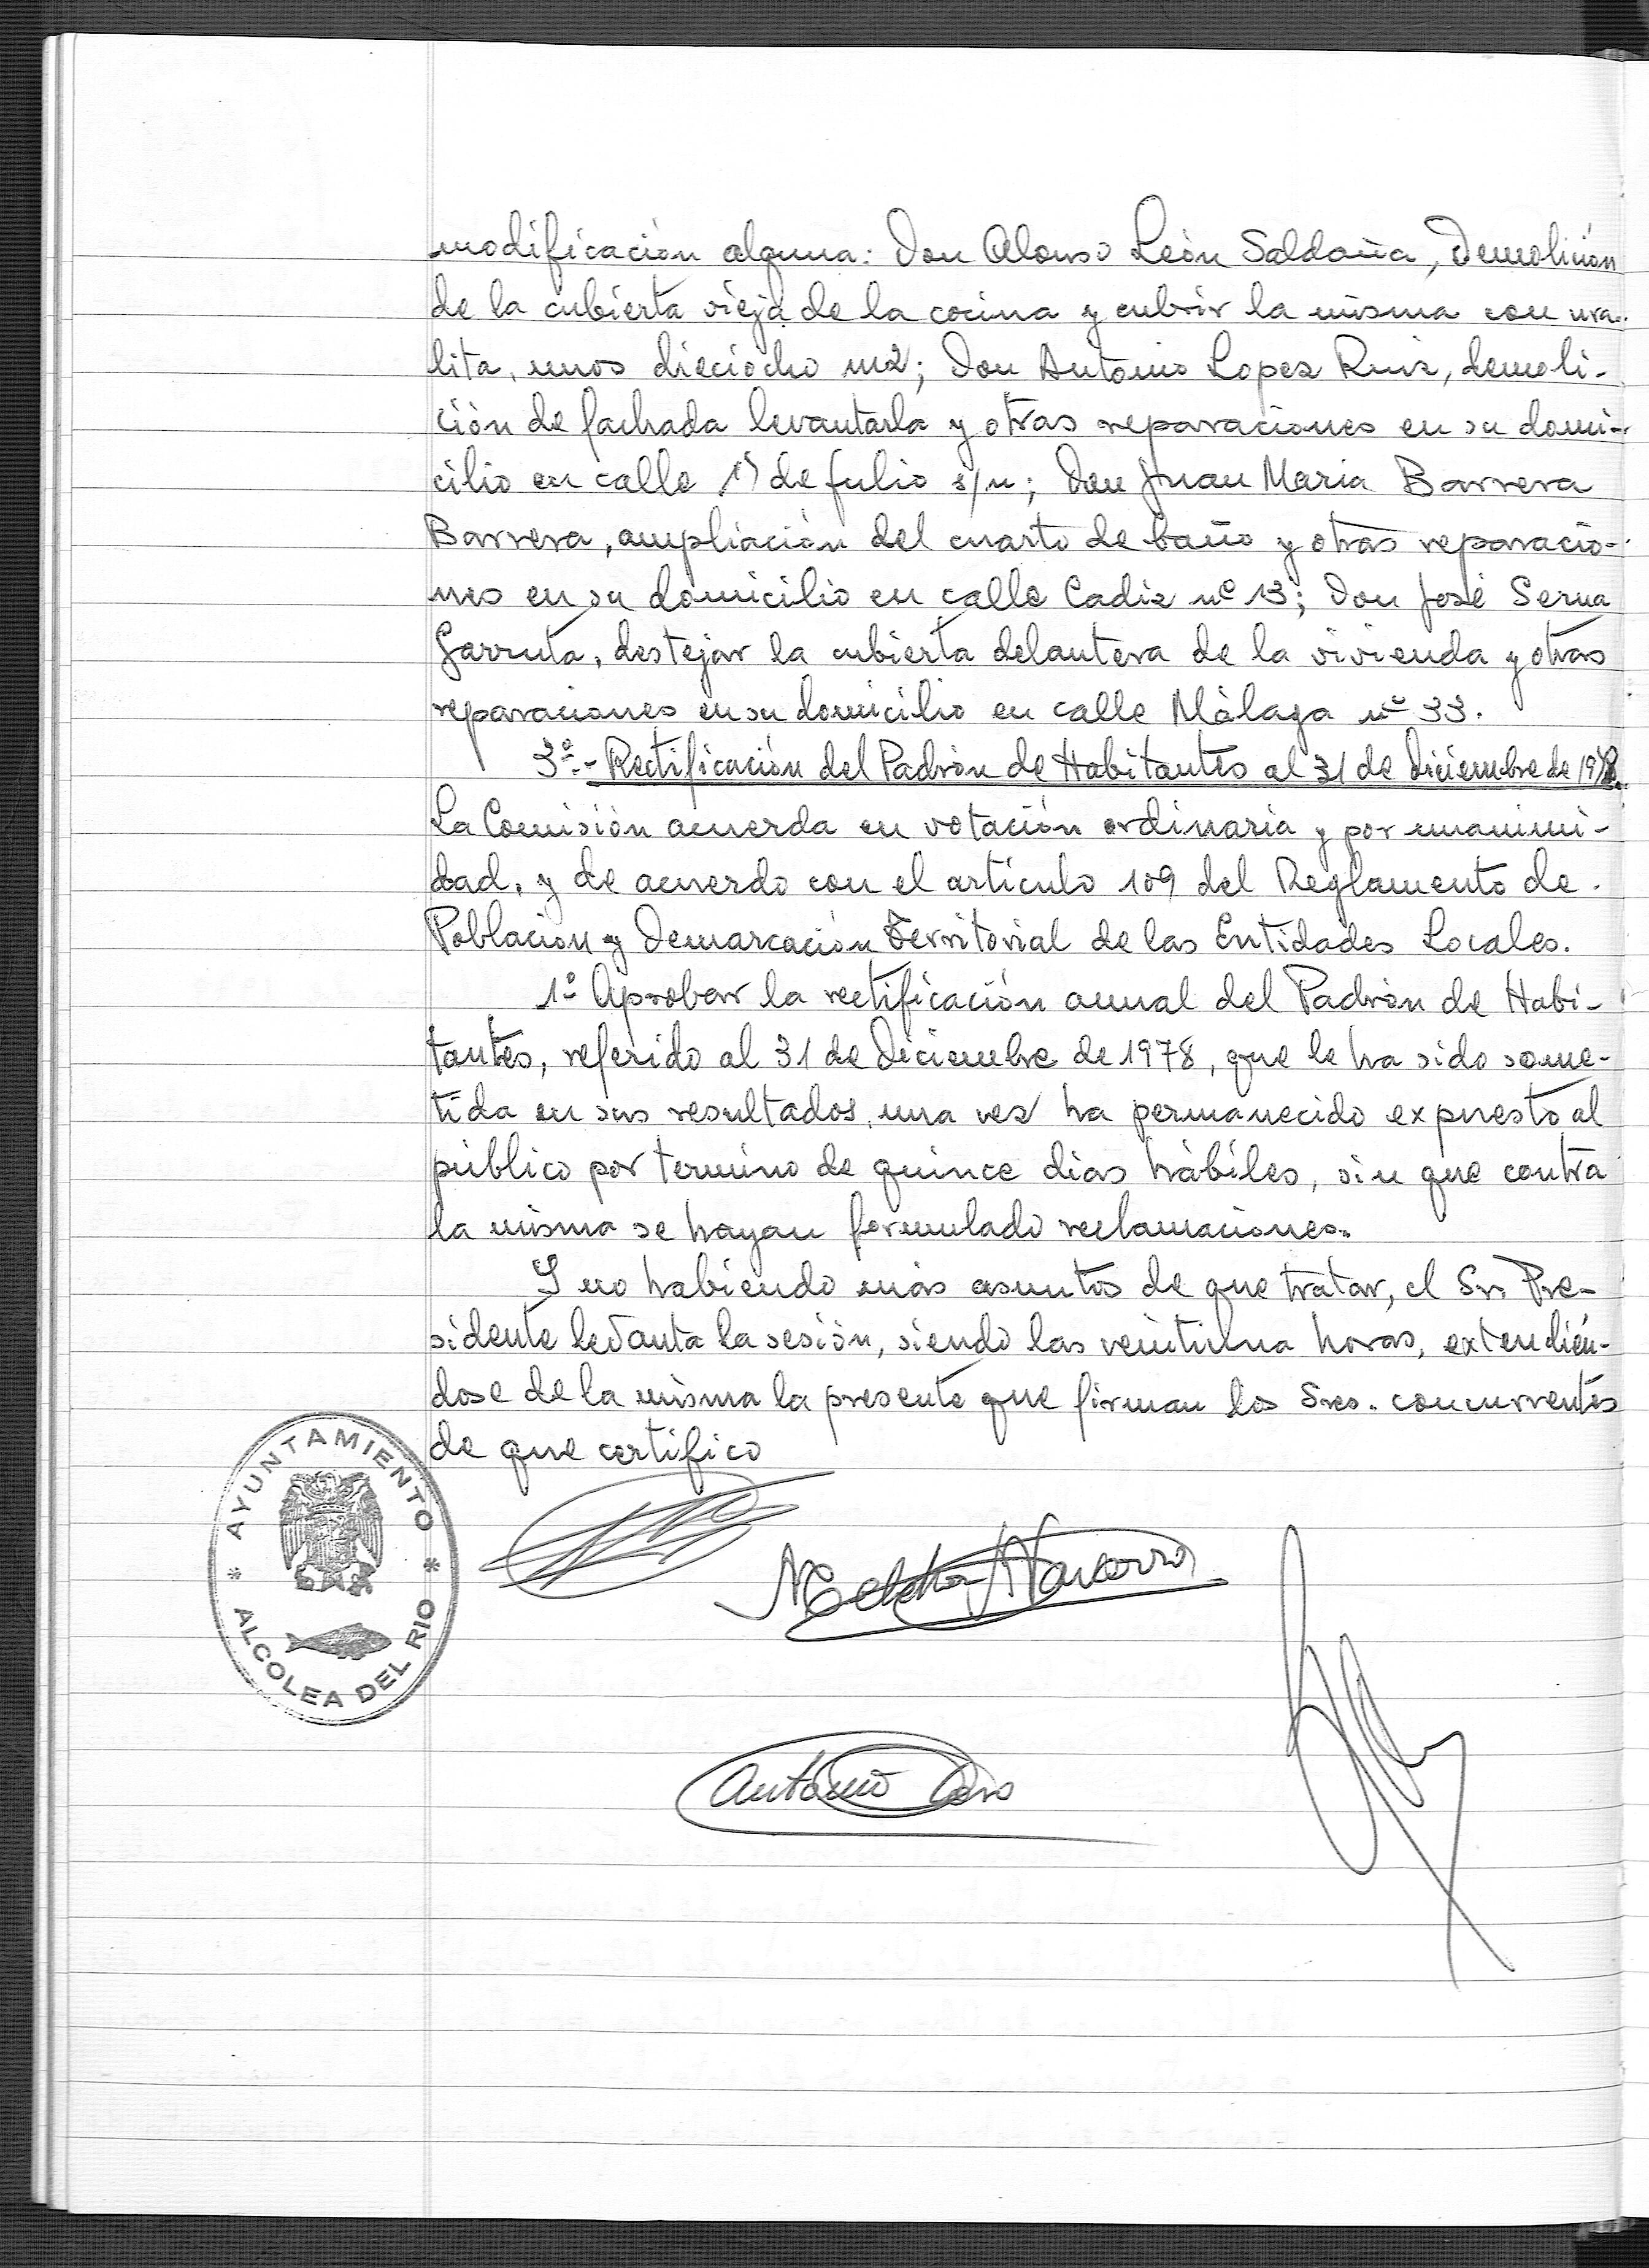 modificación alguna: Don Alonso León Saldaña, Demolición
de la cubierta vieja de la cocina y cubrir la misma con ura-
lita, unos dieciocho m2; Don Antonio Lopez Ruiz, demoli-
ción de fachada levantarla y otras reparaciones en su domi-
cilio en calle de Julio s/n; Don Juan Maria Barrera
Barrera, ampliación del cuarto de baño y otras reparacio-
nes en su domicilio en calle Cadiz nº 13; Don José Serna
Garruta, destejar la cubierta delantera de la vivienda y otras
reparaciones en su domicilio en calle Málaga nº 33.
3º.- Rectificación del Padrón de Habitantes al 31 de Diciembre de 1978.
La Comisión acuerda en votación ordinaria y por unanimi-
dad, y de acuerdo con el artículo 109 del Reglamento de
Población y Demarcación Territorial de las Entidades Locales.
1º Aprobar la rectificación anual del Padrón de Habi-
tantes, referido al 31 de Diciembre de 1978, que le ha sido some-
tida en sus resultados, una vez ha permanecido expuesto al
público por termino de quince dias hábiles, sin que contra
la misma se hayan formulado reclamaciones.
Y no habiendo más asuntos de que tratar, el Sr. Pre-
sidente levanta la sesión, siendo las veintiuna horas, extendién-
dose de la misma la presente que firman los Sres. concurrentes
de que certifico
* AYUNTAMIENTO *
ALCOLEA DEL RIO
Melchor Navarro
Antonio Caro